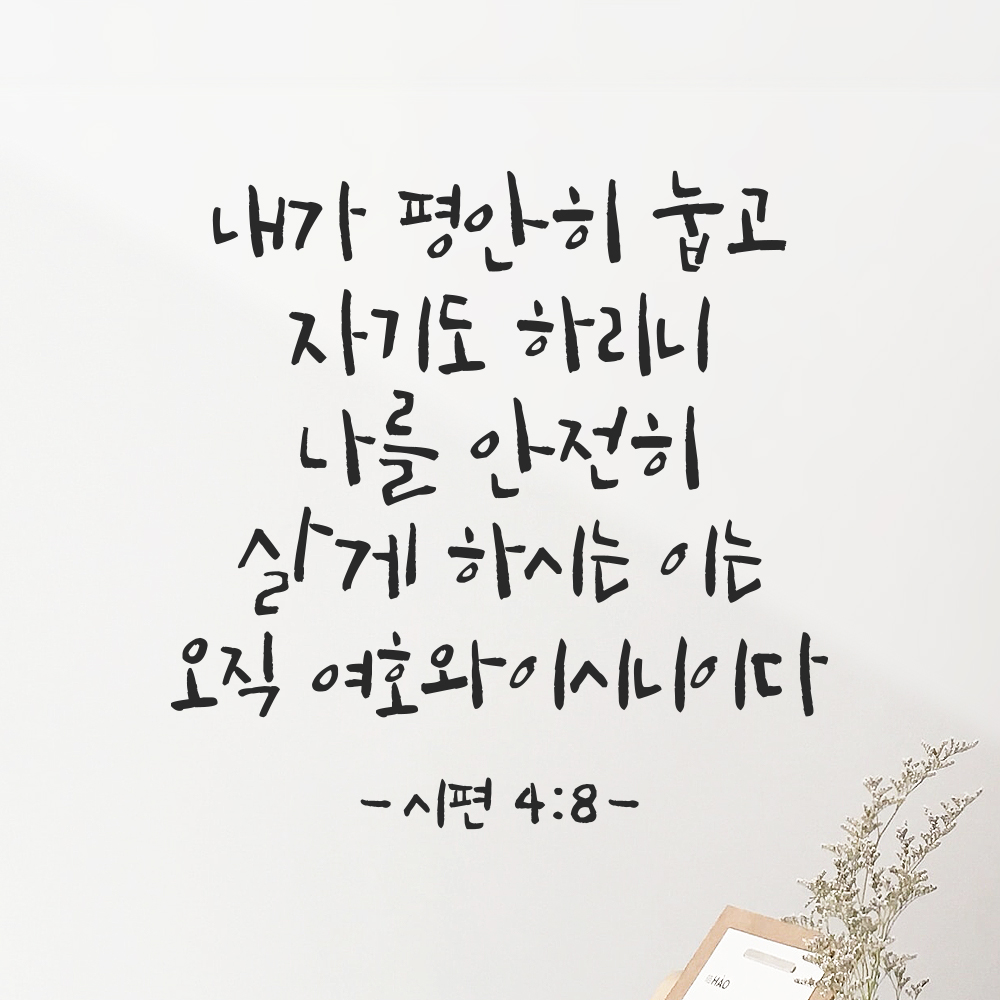 내가 평안히 눕고
자기도 하리니
나를 안전히
살게 하시는 이는
오직 여호와이시니이다
-시편 4:8-
HAO